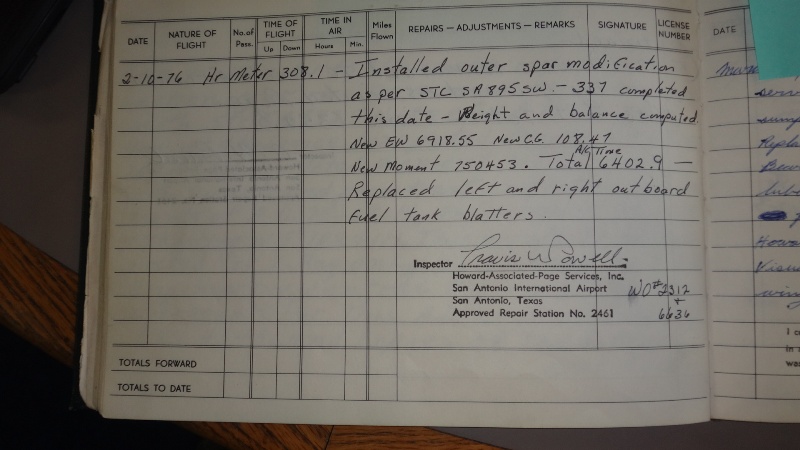 DATE NATURE OF FLIGHT No. of Pass. TIME OF FLIGHT Up Down TIME IN AIR Hours Min. Miles Flown REPAIRS — ADJUSTMENTS — REMARKS SIGNATURE LICENSE NUMBER
2-10-76 Hr Meter 308.1 — Installed outer spar modification
as per STC SA895SW. - 337 completed
this date - Weight and balance computed
New EW 6918.55 New C.G. 108.47
New Moment 750453. Total A/C Time 6402.9 —
Replaced left and right outboard
Fuel tank blatters.
Inspector Travis W Powell
Howard-Associated-Page Services, Inc.
San Antonio International Airport WO# 2312
San Antonio, Texas +
Approved Repair Station No. 2461 6636
TOTALS FORWARD
TOTALS TO DATE
DATE
serv
sump
Repla
Howa
Visu
I
in
was